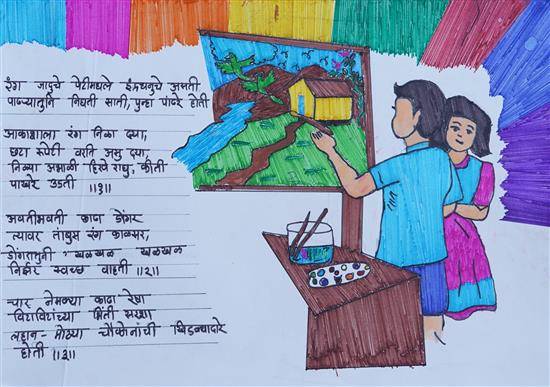 रंग जादूचे पेटीमधले इंद्रधनुचे असती
पाण्यातुनि निघती साती, पुन्हा पांढरे होती
आकाशाला रंग निळा द्या,
छटा रुपेरी वरति असु द्या,
निळ्या अभाळी हिरवे राघू, कीती
पाखरे उडती ॥१॥
अवतीभवती काढा डोंगर
त्यावर तांबुस रंग काळसर,
डोंगरातुनी खळखळ खळखळ
निर्झर स्वच्छ वाहती ॥२॥
चार नेमक्या काढा रेषा
विटाविटांच्या भिंती सरशा
लहान-मोठ्या चौकोनांची खिडक्यादारे
होती ॥३॥